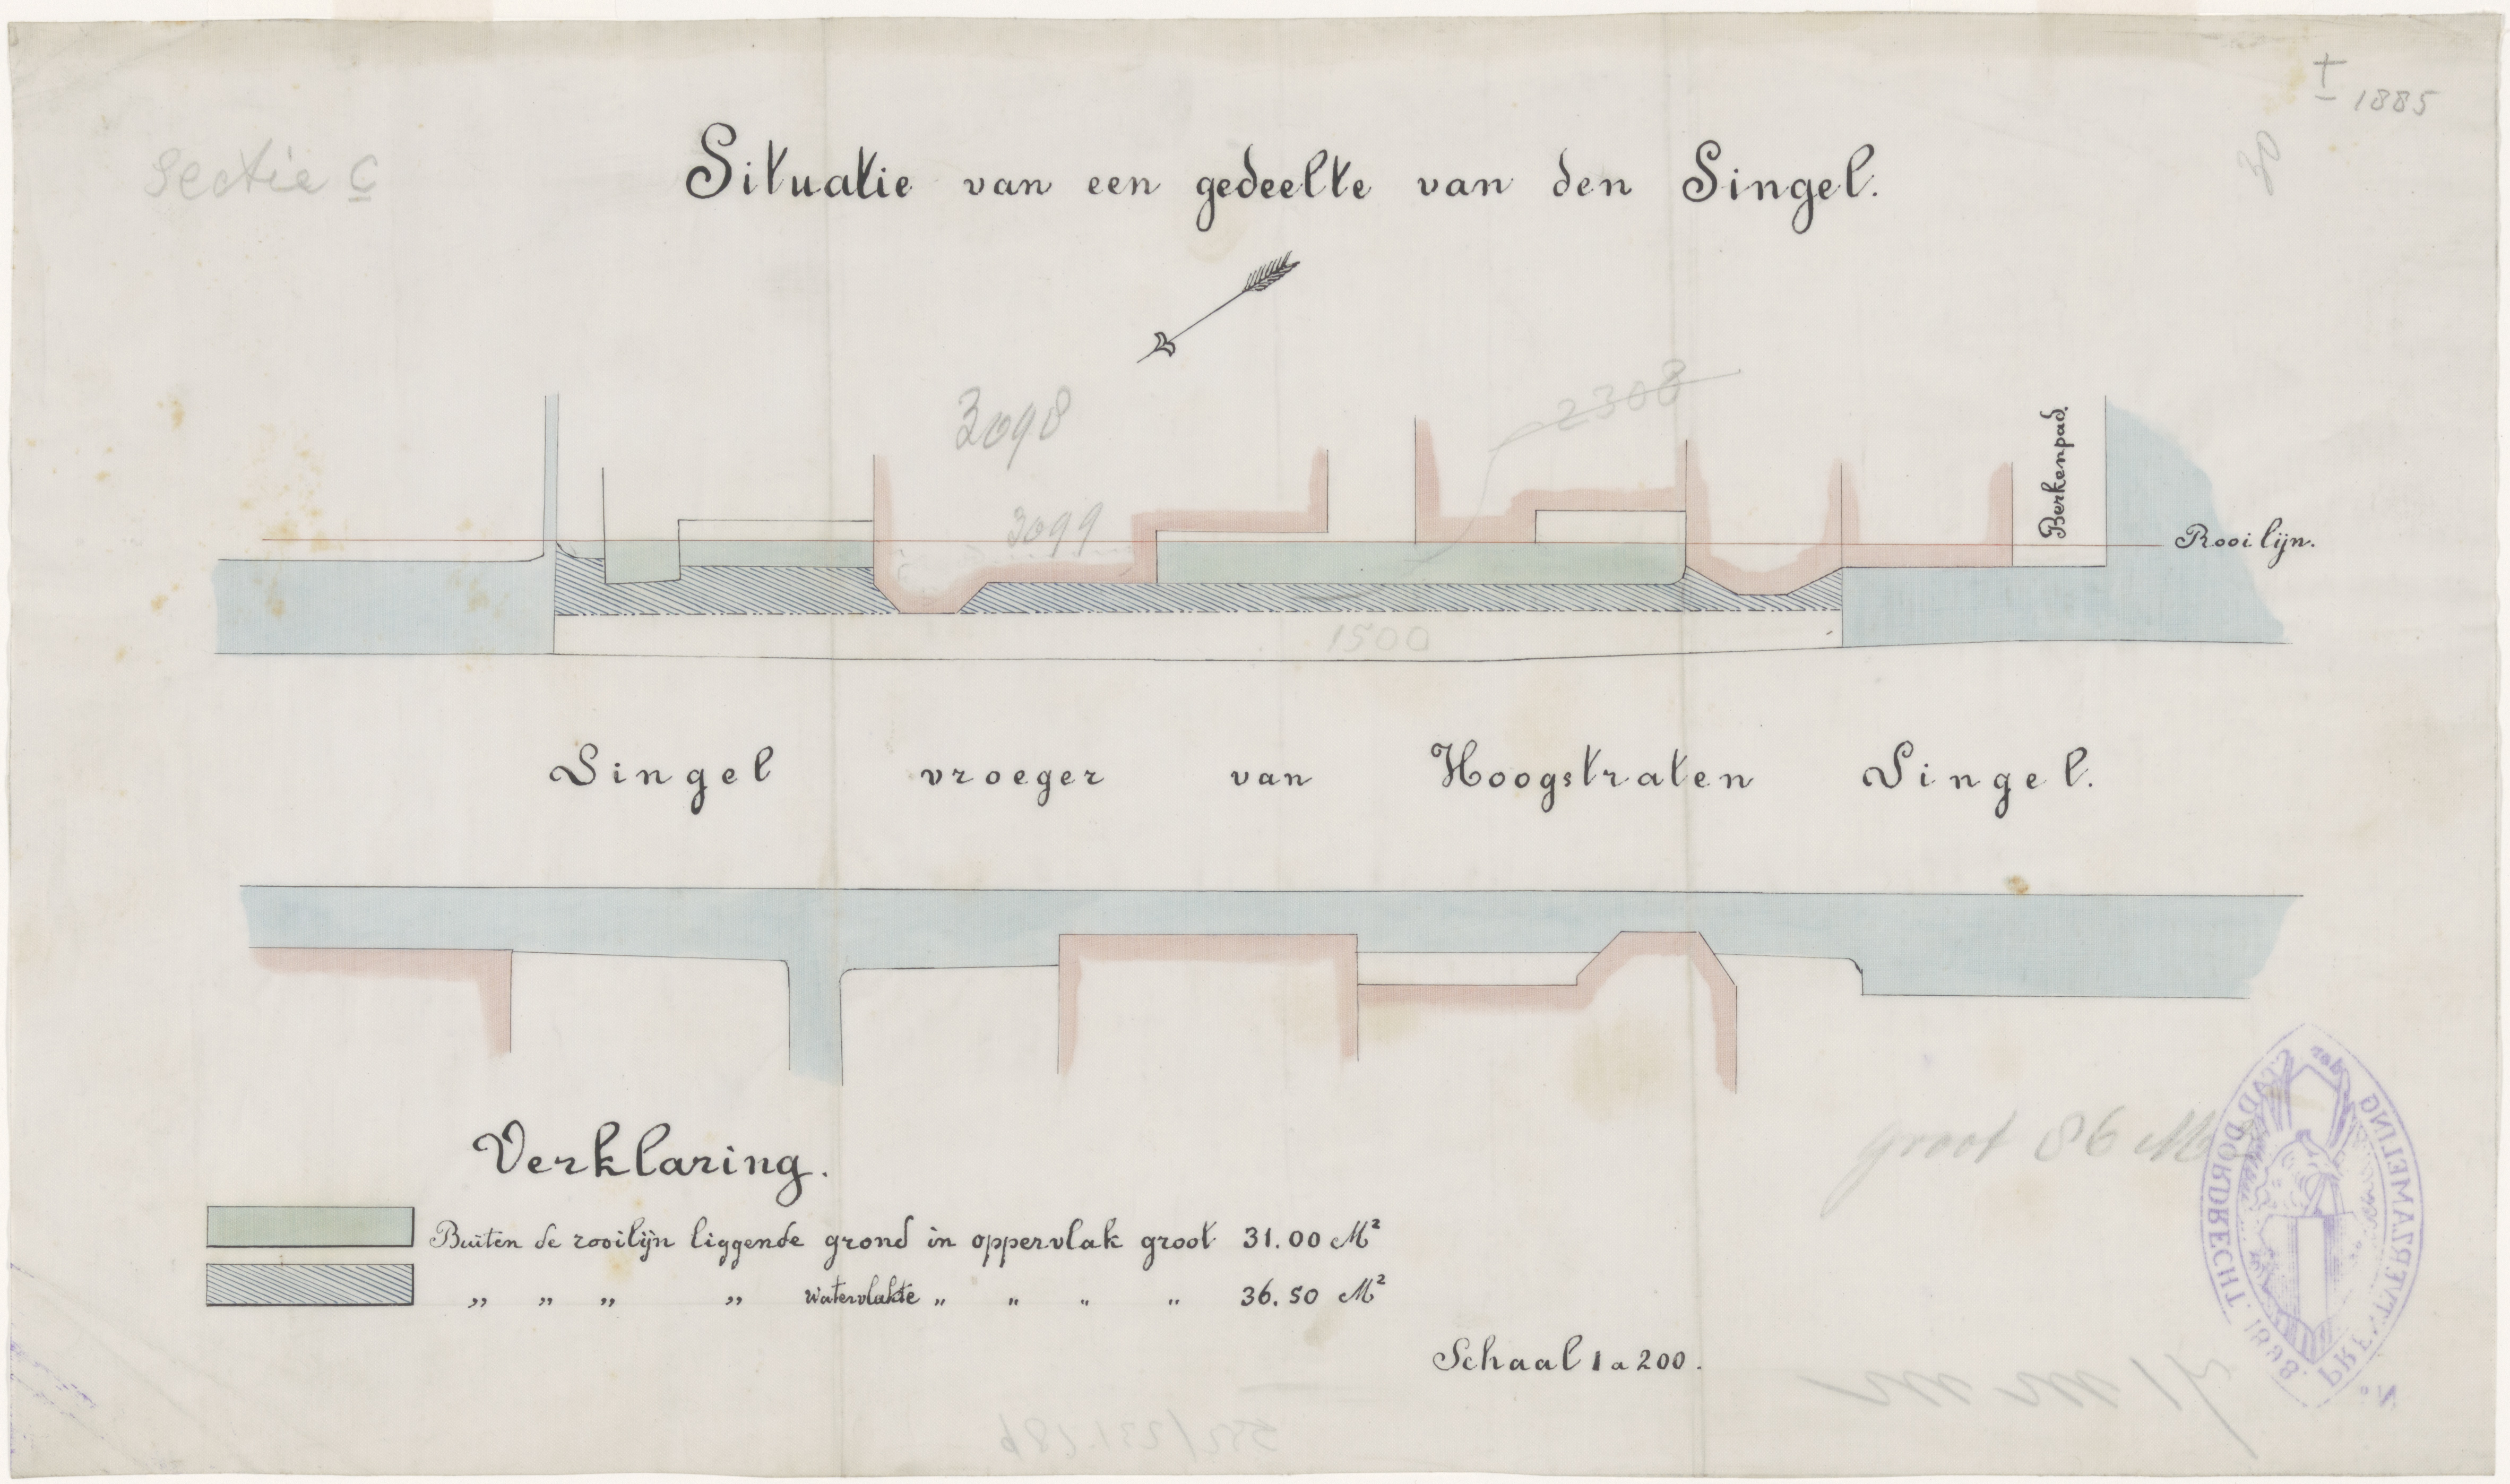 ± 1885
30
Sectie C
Situatie van een gedeelte van den Singel.
3098
2308
3099
Berkenpad.
Rooilijn.
1500
Singel vroeger van Hoogstraten Singel.
Verklaring.
groot 86 M
Buiten de rooilijn liggende grond in oppervlak groot 31.00 M²
„ „ „ „ watervlakte „ „ „ „ 36.50 M²
Schaal 1 a 200.
STAD DORDRECHT. 1898. PRENTVERZAMELING
No
552/231.186